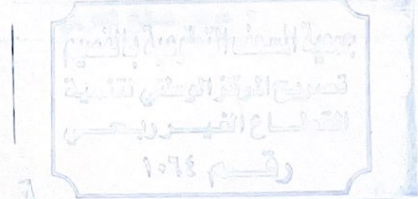 جمعية المسكن التنموية بالقصيم
تصريح المركز الوطني لتنمية
القطاع الغير ربحي
رقم ١٠٦٤